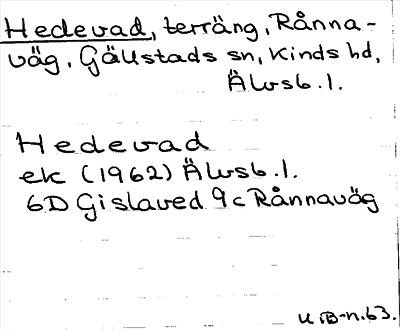 Hedevad, terräng, Rånna-
väg, Gällstads sn, Kinds hd,
Älvsb. l.
Hedevad
ek (1962) Älvsb. l.
6D Gislaved 9c Rånnaväg
U.B-n.63.